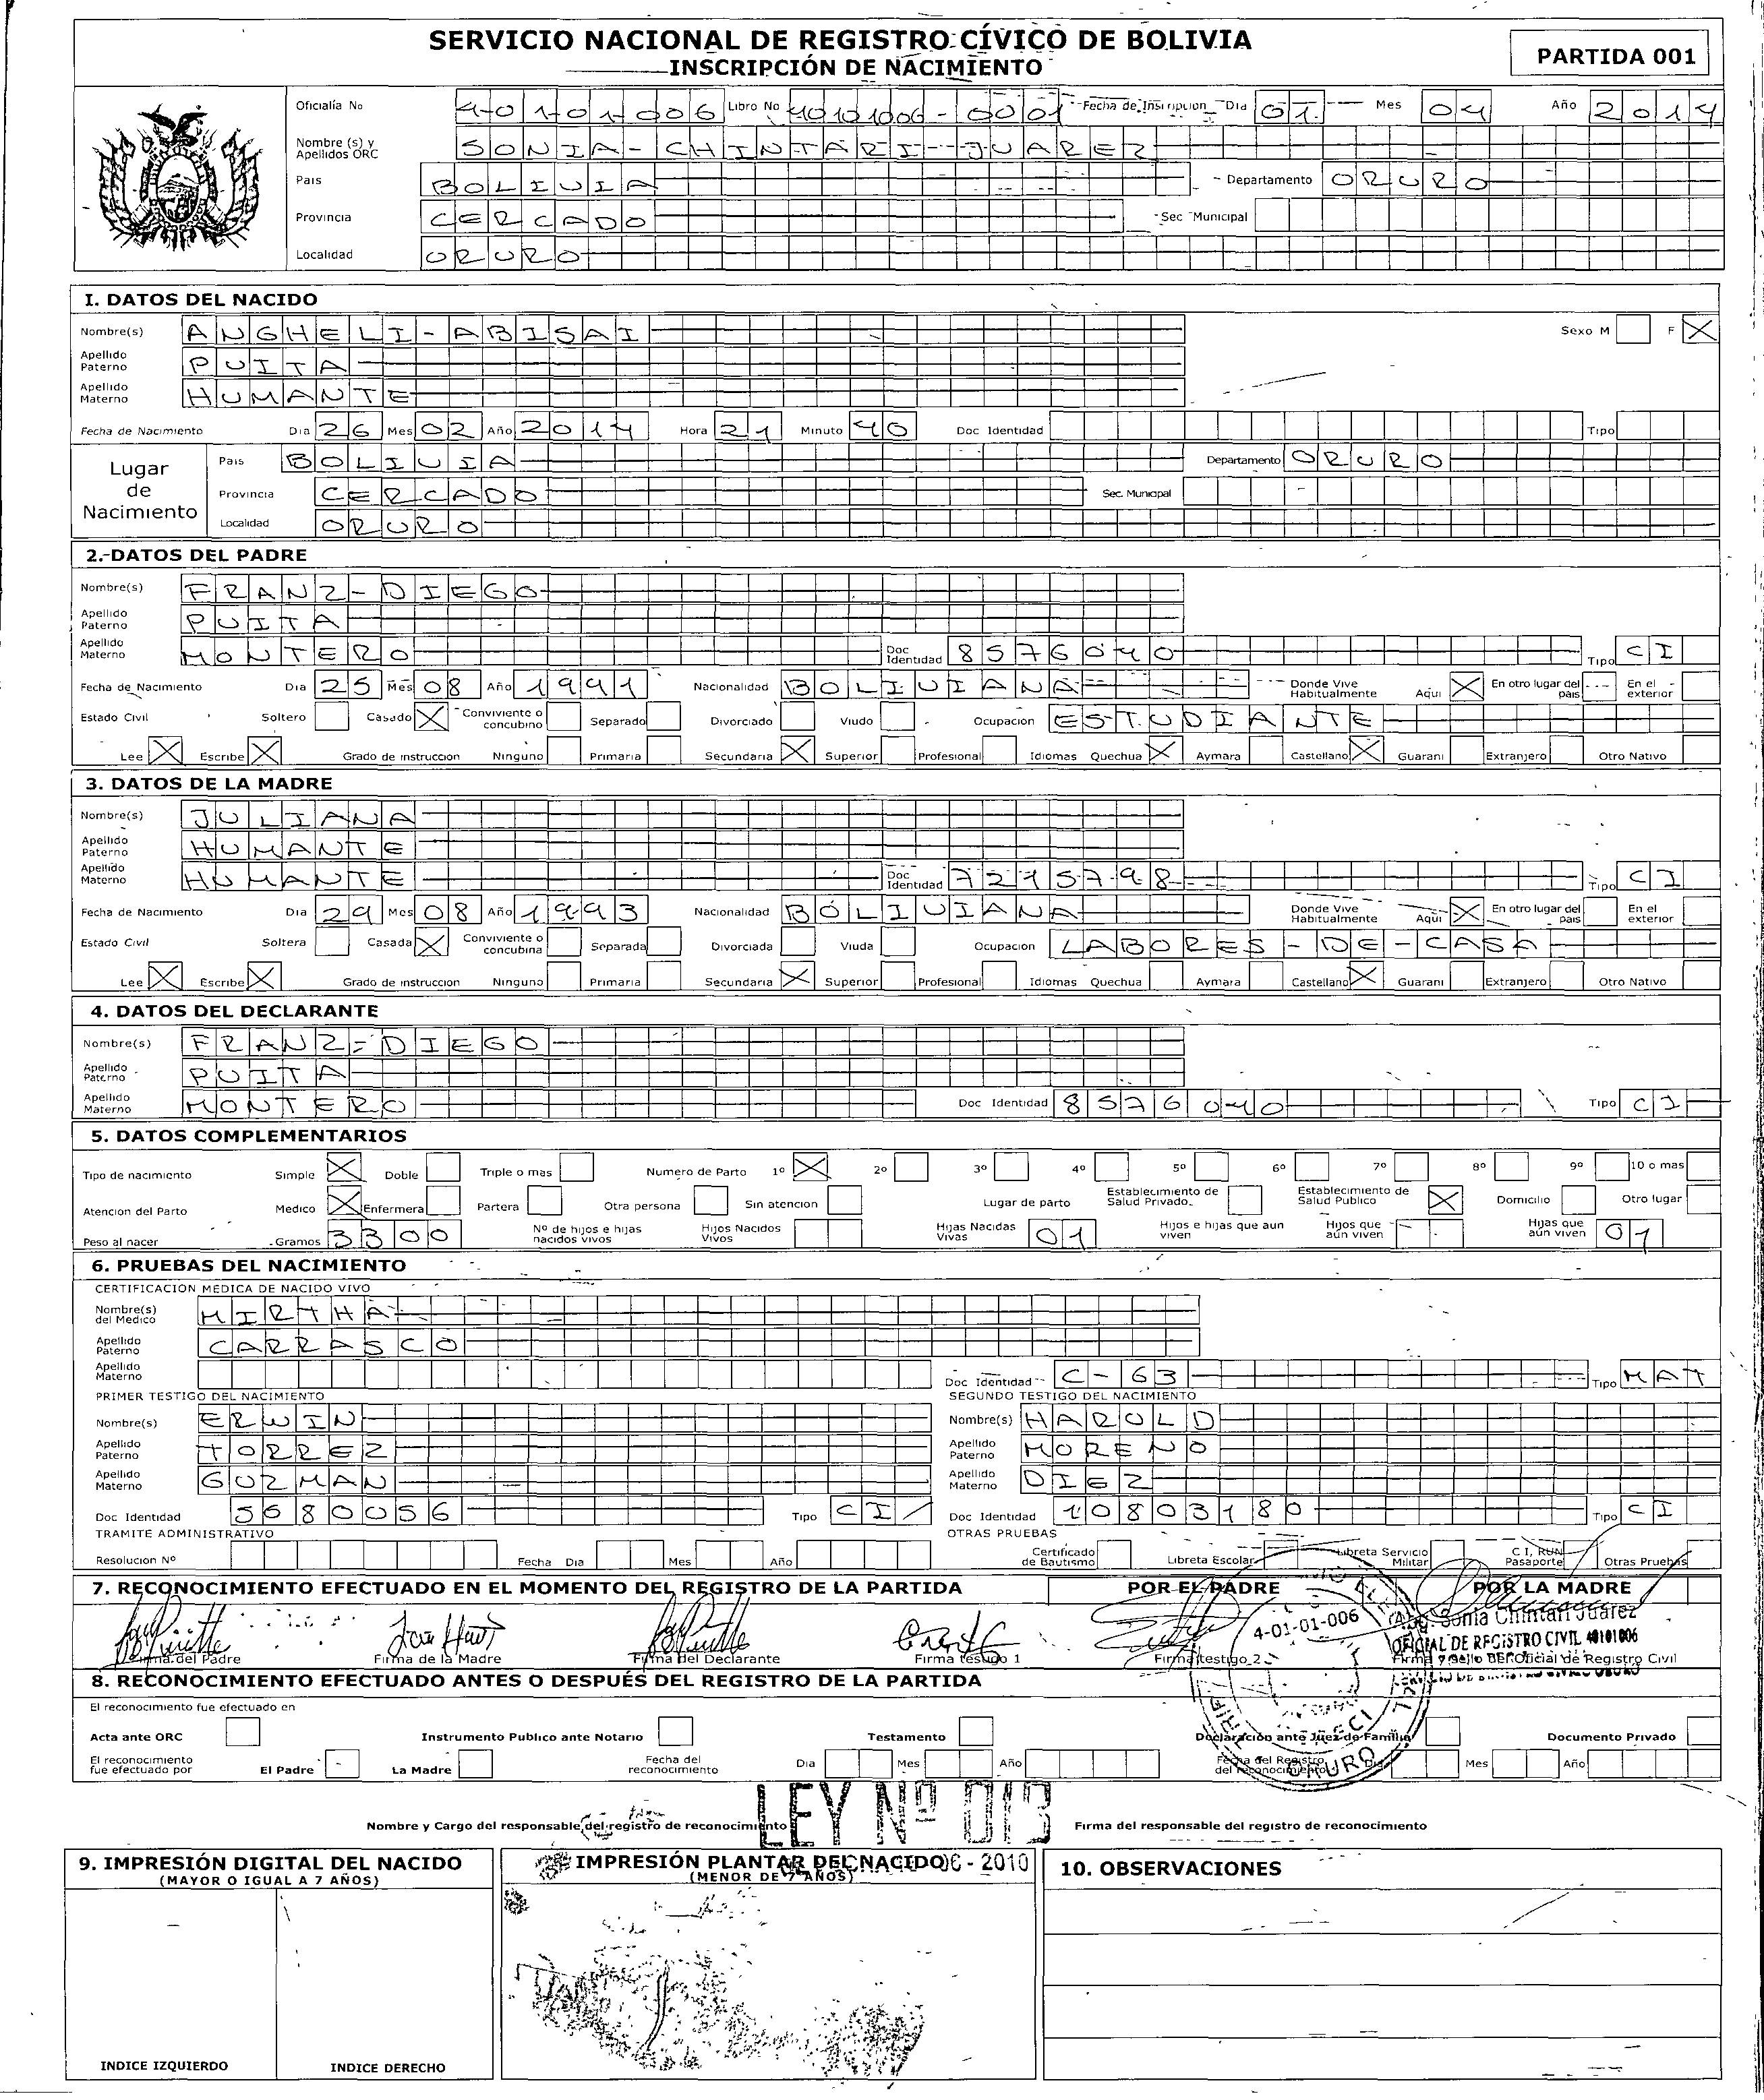 SERVICIO NACIONAL DE REGISTRO CÍVICO DE BOLIVIA
INSCRIPCIÓN DE NACIMIENTO
PARTIDA 001
Oficialía No 4-01-01-006 Libro No 40101006-0001 Fecha de Inscripcion Dia 01 Mes 04 Año 2014
Nombre (s) y Apellidos ORC SONIA-CHINTARI-JUAREZ
Pais BOLIVIA Departamento ORURO
Provincia CERCADO Sec Municipal
Localidad ORURO
I. DATOS DEL NACIDO
Nombre(s) ANGHELI-ABISAI Sexo M F X
Apellido Paterno PUITA
Apellido Materno HUMANTE
Fecha de Nacimiento Dia 26 Mes 02 Año 2014 Hora 21 Minuto 40 Doc Identidad Tipo
Lugar de Nacimiento
Pais BOLIVIA Departamento ORURO
Provincia CERCADO Sec. Municipal
Localidad ORURO
2.-DATOS DEL PADRE
Nombre(s) FRANZ-DIEGO
Apellido Paterno PUITA
Apellido Materno MONTERO Doc Identidad 8576040 Tipo CI
Fecha de Nacimiento Dia 25 Mes 08 Año 1991 Nacionalidad BOLIVIANA Donde Vive Habitualmente Aqui X En otro lugar del pais En el exterior
Estado Civil Soltero Casado X Conviviente o concubino Separado Divorciado Viudo Ocupacion ESTUDIANTE
Lee X Escribe X Grado de instruccion Ninguno Primaria Secundaria X Superior Profesional Idiomas Quechua X Aymara Castellano X Guarani Extranjero Otro Nativo
3. DATOS DE LA MADRE
Nombre(s) JULIANA
Apellido Paterno HUMANTE
Apellido Materno HUMANTE Doc Identidad 7215798 Tipo CI
Fecha de Nacimiento Dia 29 Mes 08 Año 1993 Nacionalidad BOLIVIANA Donde Vive Habitualmente Aqui X En otro lugar del pais En el exterior
Estado Civil Soltera Casada X Conviviente o concubina Separada Divorciada Viuda Ocupacion LABORES-DE-CASA
Lee X Escribe X Grado de instruccion Ninguno Primaria Secundaria X Superior Profesional Idiomas Quechua Aymara Castellano X Guarani Extranjero Otro Nativo
4. DATOS DEL DECLARANTE
Nombre(s) FRANZ-DIEGO
Apellido Paterno PUITA
Apellido Materno MONTERO Doc Identidad 8576040 Tipo CI
5. DATOS COMPLEMENTARIOS
Tipo de nacimiento Simple X Doble Triple o mas Numero de Parto 1º X 2º 3º 4º 5º 6º 7º 8º 9º 10 o mas
Atencion del Parto Medico X Enfermera Partera Otra persona Sin atencion Lugar de parto Establecimiento de Salud Privado. Establecimiento de Salud Publico X Domicilio Otro lugar
Peso al nacer Gramos 3300 Nº de hijos e hijas nacidos vivos Hijos Nacidos Vivos Hijas Nacidas Vivas 01 Hijos e hijas que aun viven Hijos que aún viven Hijas que aún viven 01
6. PRUEBAS DEL NACIMIENTO
CERTIFICACION MEDICA DE NACIDO VIVO
Nombre(s) del Medico MIRTHA
Apellido Paterno CARRASCO
Apellido Materno Doc Identidad C-63 Tipo MAT
PRIMER TESTIGO DEL NACIMIENTO SEGUNDO TESTIGO DEL NACIMIENTO
Nombre(s) ERWIN Nombre(s) HAROLD
Apellido Paterno TORREZ Apellido Paterno MORENO
Apellido Materno GUZMAN Apellido Materno DIEZ
Doc Identidad 5680056 Tipo CI Doc Identidad 10803180 Tipo CI
TRAMITE ADMINISTRATIVO OTRAS PRUEBAS
Resolucion Nº Fecha Dia Mes Año Certificado de Bautismo Libreta Escolar Libreta Servicio Militar C I, RUN Pasaporte Otras Pruebas
7. RECONOCIMIENTO EFECTUADO EN EL MOMENTO DEL REGISTRO DE LA PARTIDA POR EL PADRE POR LA MADRE
4-01-01-006 Abg. Sonia Chintari Juarez
OFICIAL DE REGISTRO CIVIL 40101006
Firma del Padre Firma de la Madre Firma del Declarante Firma testigo 1 Firma testigo 2 Firma y Sello del Oficial de Registro Civil
8. RECONOCIMIENTO EFECTUADO ANTES O DESPUÉS DEL REGISTRO DE LA PARTIDA
El reconocimiento fue efectuado en
Acta ante ORC Instrumento Publico ante Notario Testamento Declaración ante Juez de Familia Documento Privado
El reconocimiento fue efectuado por El Padre La Madre Fecha del reconocimiento Dia Mes Año Fecha del Registro del reconocimiento Dia Mes Año
ORURO
LEY Nº 013
Nombre y Cargo del responsable del registro de reconocimiento Firma del responsable del registro de reconocimiento
9. IMPRESIÓN DIGITAL DEL NACIDO
(MAYOR O IGUAL A 7 AÑOS)
IMPRESIÓN PLANTAR DEL NACIDO 06 - 2010
(MENOR DE 7 AÑOS)
10. OBSERVACIONES
INDICE IZQUIERDO INDICE DERECHO